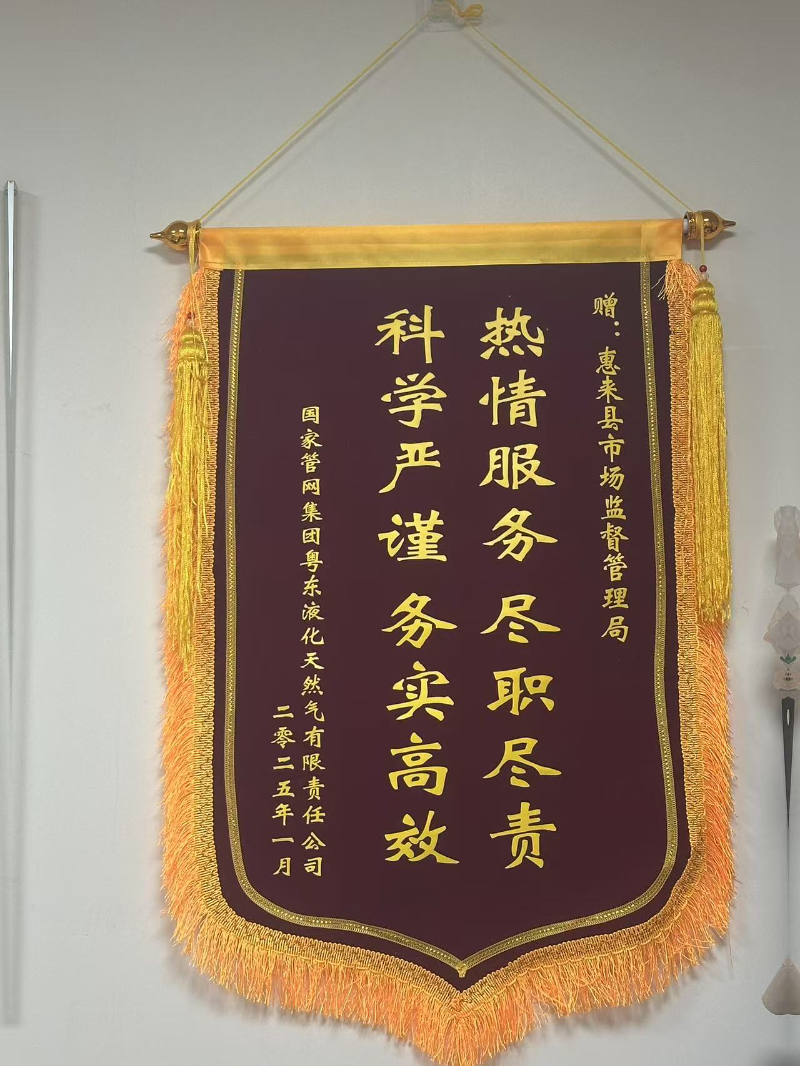 赠：惠来县市场监督管理局
热情服务 尽职尽责
科学严谨 务实高效
国家管网集团粤东液化天然气有限责任公司
二零二五年一月